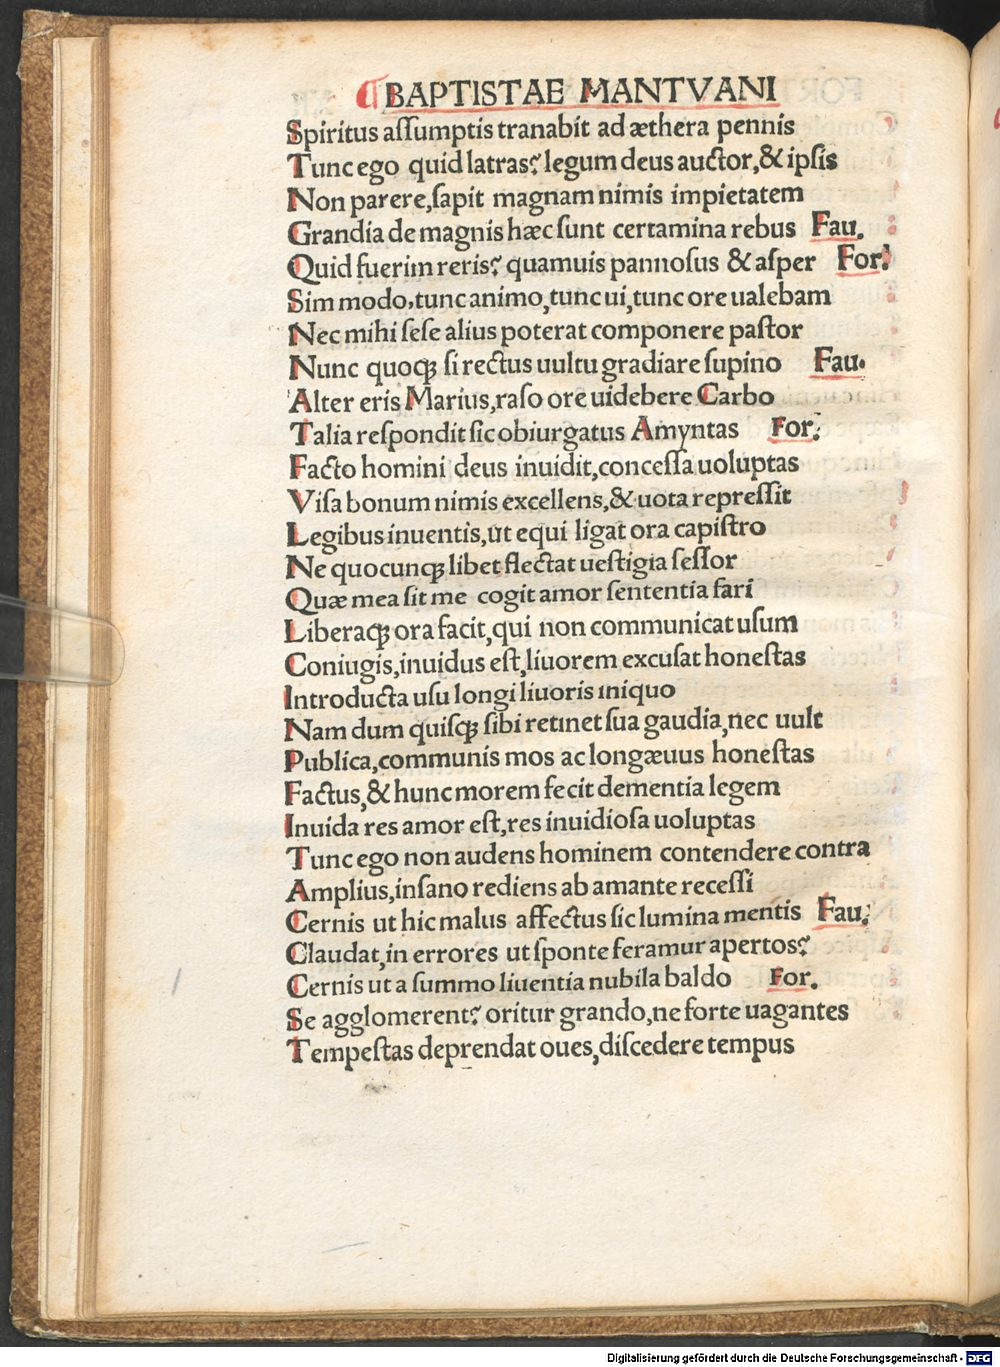 BAPTISTAE MANTVANI
Spiritus aſſumptis tranabit ad æthera pennis
Tunc ego quid latras? legum deus auctor, & ipſis
Non parere, ſapit magnam nimis impietatem
Grandia de magnis hæc ſunt certamina rebus Fau.
Quid fuerim reris? quamuis pannoſus & aſper For.
Sim modo, tunc animo, tunc ui, tunc ore ualebam
Nec mihi ſeſe alius poterat componere paſtor
Nunc quoqꝫ ſi rectus uultu gradiare ſupino Fau.
Alter eris Marius, raſo ore uidebere Carbo
Talia reſpondit ſic obiurgatus Amyntas For.
Facto homini deus inuidit, conceſſa uoluptas
Viſa bonum nimis excellens, & uota repreſſit
Legibus inuentis, ut equi ligat ora capiſtro
Ne quocunqꝫ libet flectat ueſtigia ſeſſor
Quæ mea ſit me cogit amor ſententia fari
Liberaqꝫ ora facit, qui non communicat uſum
Coniugis, inuidus eſt, liuorem excuſat honeſtas
Introducta uſu longi liuoris iniquo
Nam dum quiſqꝫ ſibi retinet ſua gaudia, nec uult
Publica, communis mos ac longæuus honeſtas
Factus, & hunc morem fecit dementia legem
Inuida res amor eſt, res inuidioſa uoluptas
Tunc ego non audens hominem contendere contra
Amplius, inſano rediens ab amante receſſi
Cernis ut hic malus affectus ſic lumina mentis Fau.
Claudat, in errores ut ſponte feramur apertos?
Cernis ut a ſummo liuentia nubila baldo For.
Se agglomerent? oritur grando, ne forte uagantes
Tempeſtas deprendat oues, diſcedere tempus
Digitalisierung gefördert durch die Deutsche Forschungsgemeinschaft - DFG